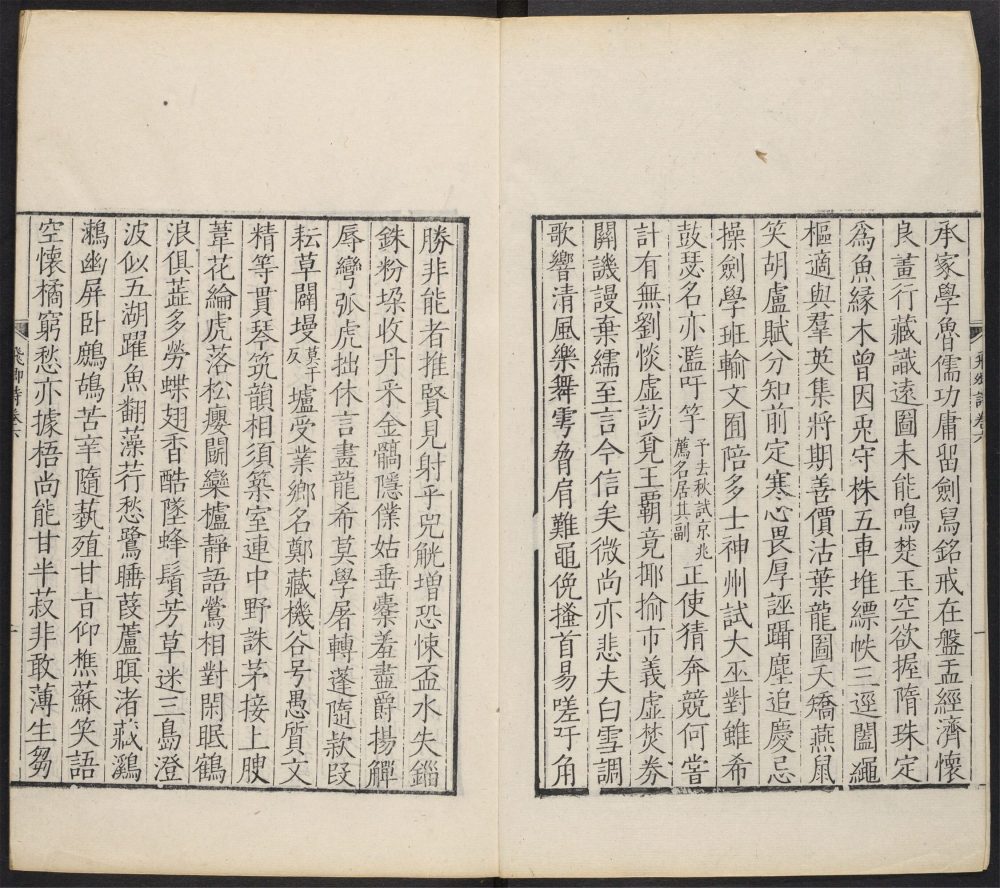 承家學魯儒功庸留劍舄銘戒在盤盂經濟懷
良畫行藏識遠圖未能鳴楚玉空欲握隋珠定
爲魚緣木曾因兎守株五車堆縹帙三逕闔繩
樞適與羣英集將期善價沽葉龍圖夭矯燕鼠
笑胡盧賦分知前定寒心畏厚誣躡塵追慶忌
操劍學班輸文囿陪多士神州試大巫對雖希
鼓瑟名亦濫吹竽予去秋試京兆薦名居其副正使猜奔競何嘗
計有無劉惔虛訪覓王霸竟揶揄市義虛焚券
關譏謾棄繻至言今信矣微尚亦悲夫白雪調
歌響清風樂舞雩脅肩難黽俛搔首易嗟吁角
飛卿詩卷六
勝非能者推賢見射乎兕觥增恐悚盃水失錙
銖粉垜收丹采金髇隱僕姑垂櫜羞盡爵揚觶
辱彎弧虎拙休言畫龍希莫學屠轉蓬隨款段
耘草闢墁莫干反壚受業鄉名鄭藏機谷号愚質文
精等貫琴筑韻相須築室連中野誅茅接上腴
葦花綸虎落松癭鬭欒櫨靜語鶯相對閑眠鶴
浪俱蘂多勞蝶翅香酷墜蜂鬚芳草迷三島澄
波似五湖躍魚翻藻荇愁鷺睡葭蘆暝渚藏鸂
鶒幽屏臥鷓鴣苦辛隨蓺殖甘旨仰樵蘇笑語
空懷橘窮愁亦據梧尚能甘半菽非敢薄生芻
飛卿詩卷六